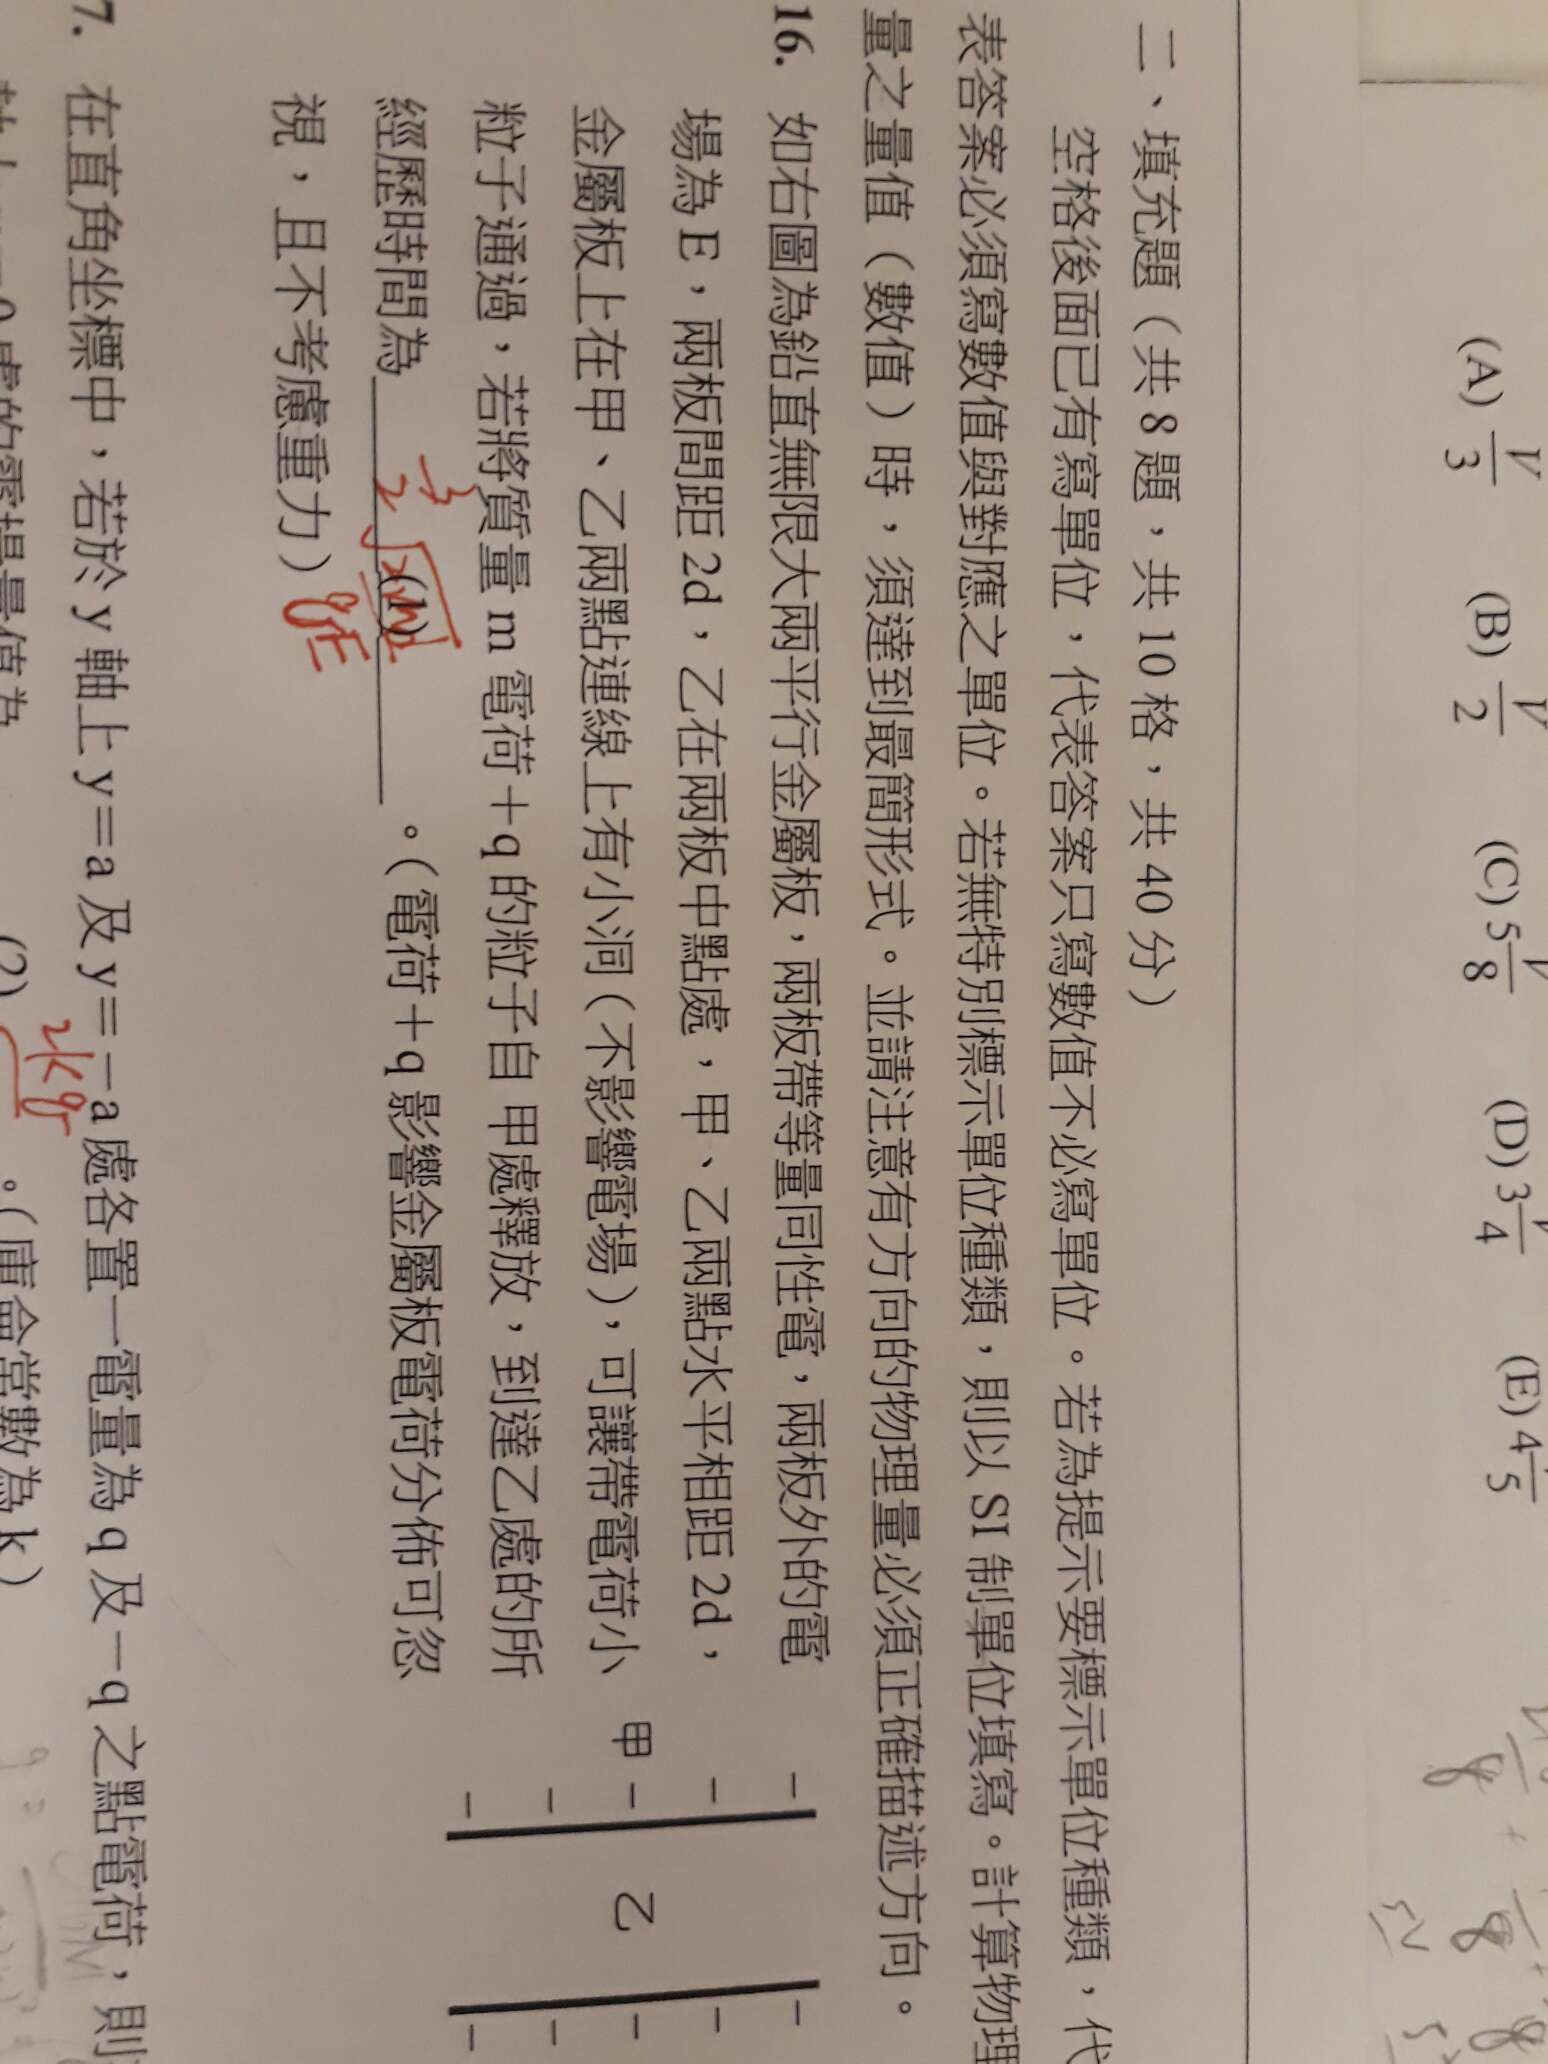 (A) V/3 (B) V/2 (C) 5V/8 (D) 3V/4 (E) 4V/5
二、填充題（共 8 題，共 10 格，共 40 分）
空格後面已有寫單位，代表答案只寫數值不必寫單位。若為提示要標示單位種類，代
表答案必須寫數值與對應之單位。若無特別標示單位種類，則以 SI 制單位填寫。計算物理
量之量值（數值）時，須達到最簡形式。並請注意有方向的物理量必須正確描述方向。
16. 如右圖為鉛直無限大兩平行金屬板，兩板帶等量同性電，兩板外的電
場為 E，兩板間距 2d，乙在兩板中點處，甲、乙兩點水平相距 2d，
金屬板上在甲、乙兩點連線上有小洞（不影響電場），可讓帶電荷小
粒子通過，若將質量 m 電荷＋q 的粒子自 甲處釋放，到達乙處的所
經歷時間為 (1) 。（電荷＋q 影響金屬板電荷分佈可忽
視，且不考慮重力）
3/2 √(2md/qE)
甲
乙
7. 在直角坐標中，若於 y 軸上 y＝a 及 y＝－a 處各置一電量為 q 及－q 之點電荷，則
(2) 。（庫侖常數為 k）
2kq